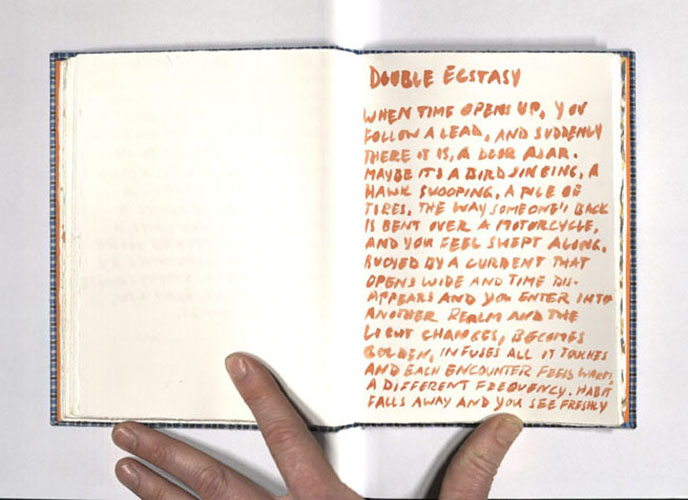 DOUBLE ECSTASY
WHEN TIME OPENS UP, YOU
FOLLOW A LEAD, AND SUDDENLY
THERE IT IS, A DOOR AJAR.
MAYBE ITS A BIRD SINGING, A
HAWK SWOOPING, A PILE OF
TIRES, THE WAY SOMEONE'S BACK
IS BENT OVER A MOTORCYCLE,
AND YOU FEEL SWEPT ALONG,
BUOYED BY A CURRENT THAT
OPENS WIDE AND TIME DIS-
APPEARS AND YOU ENTER INTO
ANOTHER REALM AND THE
LIGHT CHANGES, BECOMES
GOLDEN, INFUSES ALL IT TOUCHES
AND EACH ENCOUNTER FEELS WARM,
A DIFFERENT FREQUENCY. HABIT
FALLS AWAY AND YOU SEE FRESHLY